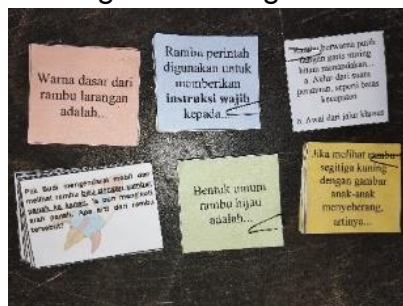 Warna dasar dari
rambu larangan
adalah...
Rambu perintah
digunakan untuk
memberikan
instruksi wajib
kepada...
Rambu berwarna putih
dengan garis miring
hitam menandakan...
a. Akhir dari suatu
peraturan, seperti batas
kecepatan
b. Awal dari jalur khusus
Pak Budi mengendarai mobil dan
melihat rambu biru dengan gambar
panah ke kanan. Ia pun mengikuti
arah panah. Apa arti dari rambu
tersebut?
Bentuk umum
rambu hijau
adalah...
Jika melihat rambu
segitiga kuning
dengan gambar
anak-anak
menyeberang,
artinya...